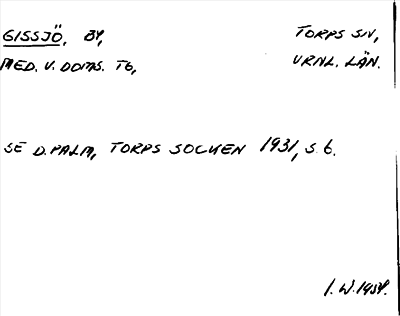 GISSJÖ, BY, TORPS SN,
MED. V. DOMS. TG, VRNL. LÄN.
SE D. PALM, TORPS SOCKEN 1931, S. 6.
I. W. 1954.